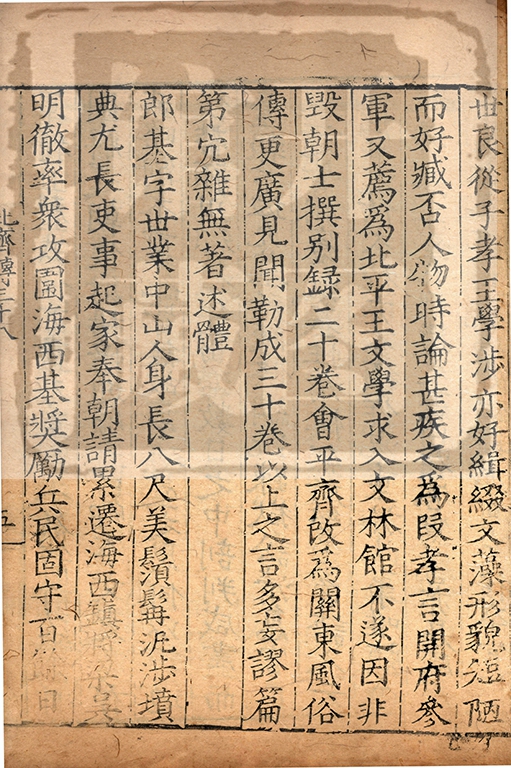 世良從子孝王學涉亦好緝綴文藻形貌短陋
而好臧否人物時論甚疾之爲段孝言開府參
軍又薦爲北平王文學求入文林館不遂因非
毀朝士撰別録二十卷會平齊改爲關東風俗
傳更廣見聞勒成三十卷以上之言多妄謬篇
第宂雜無著述體
郎基字世業中山人身長八尺美鬚髯汎涉墳
典尤長吏事起家奉朝請累遷海西鎮將吳
明徹率衆攻圍海西基奨勵兵民固守百日
北齊傳三十八
五